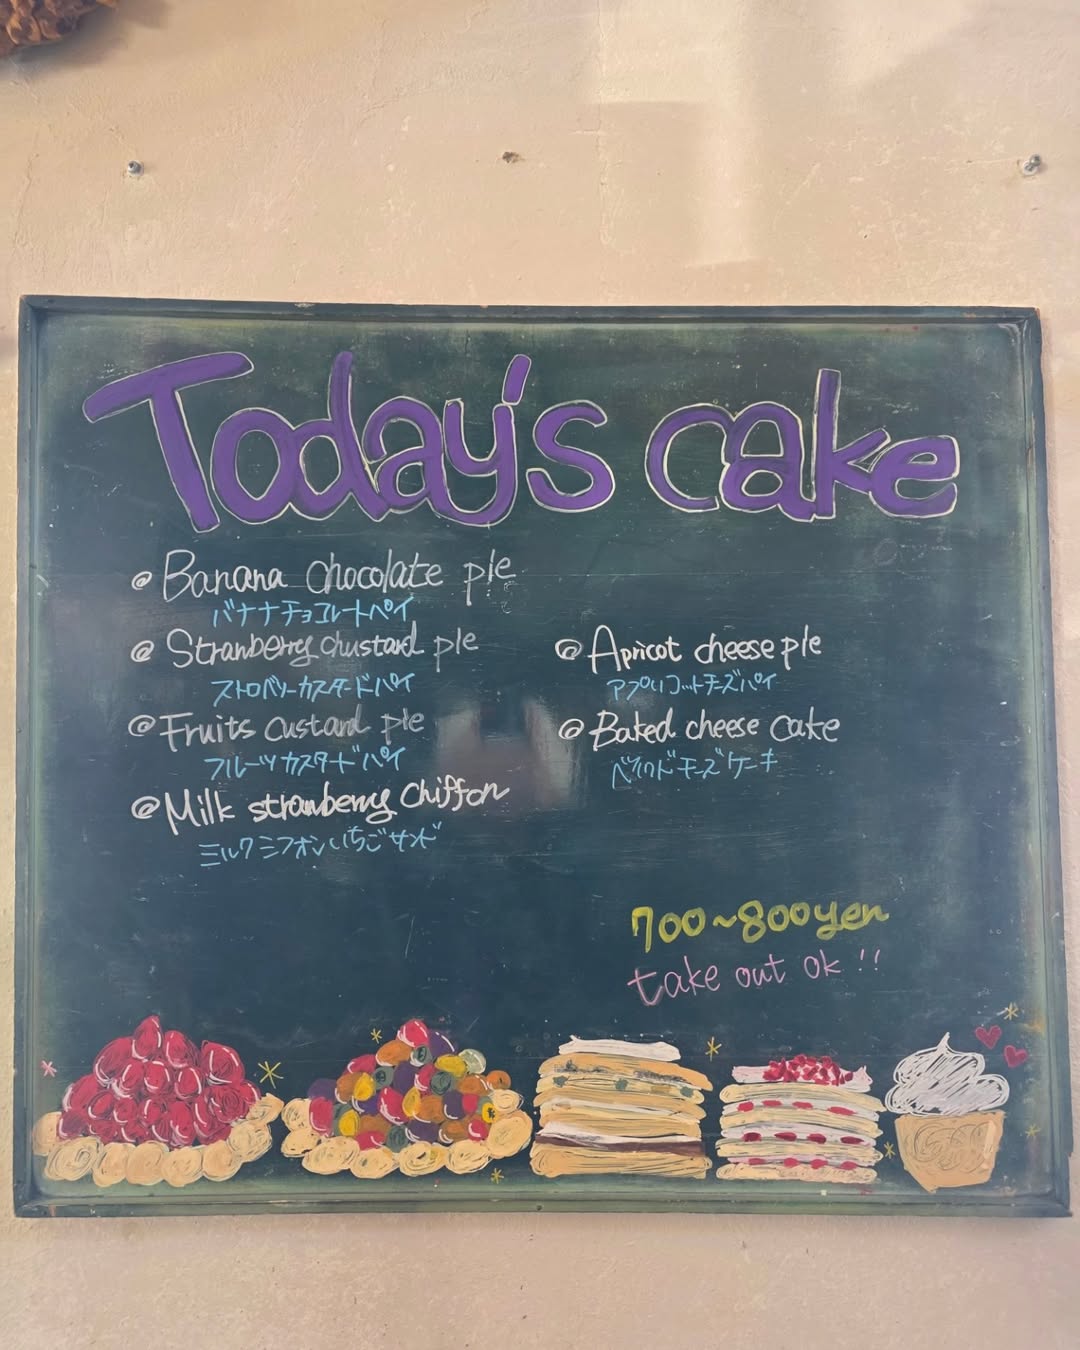 Today's cake
@ Banana chocolate pie
バナナチョコレートパイ
@ Stranberry chustard pie
ストロベリーカスタードパイ
@ Fruits custard pie
フルーツカスタードパイ
@ Milk stranberry chiffon
ミルクシフォンいちごサンド
@ Apricot cheese pie
アプリコットチーズパイ
@ Baked cheese cake
ベイクドチーズケーキ
700~800yen
take out ok!!